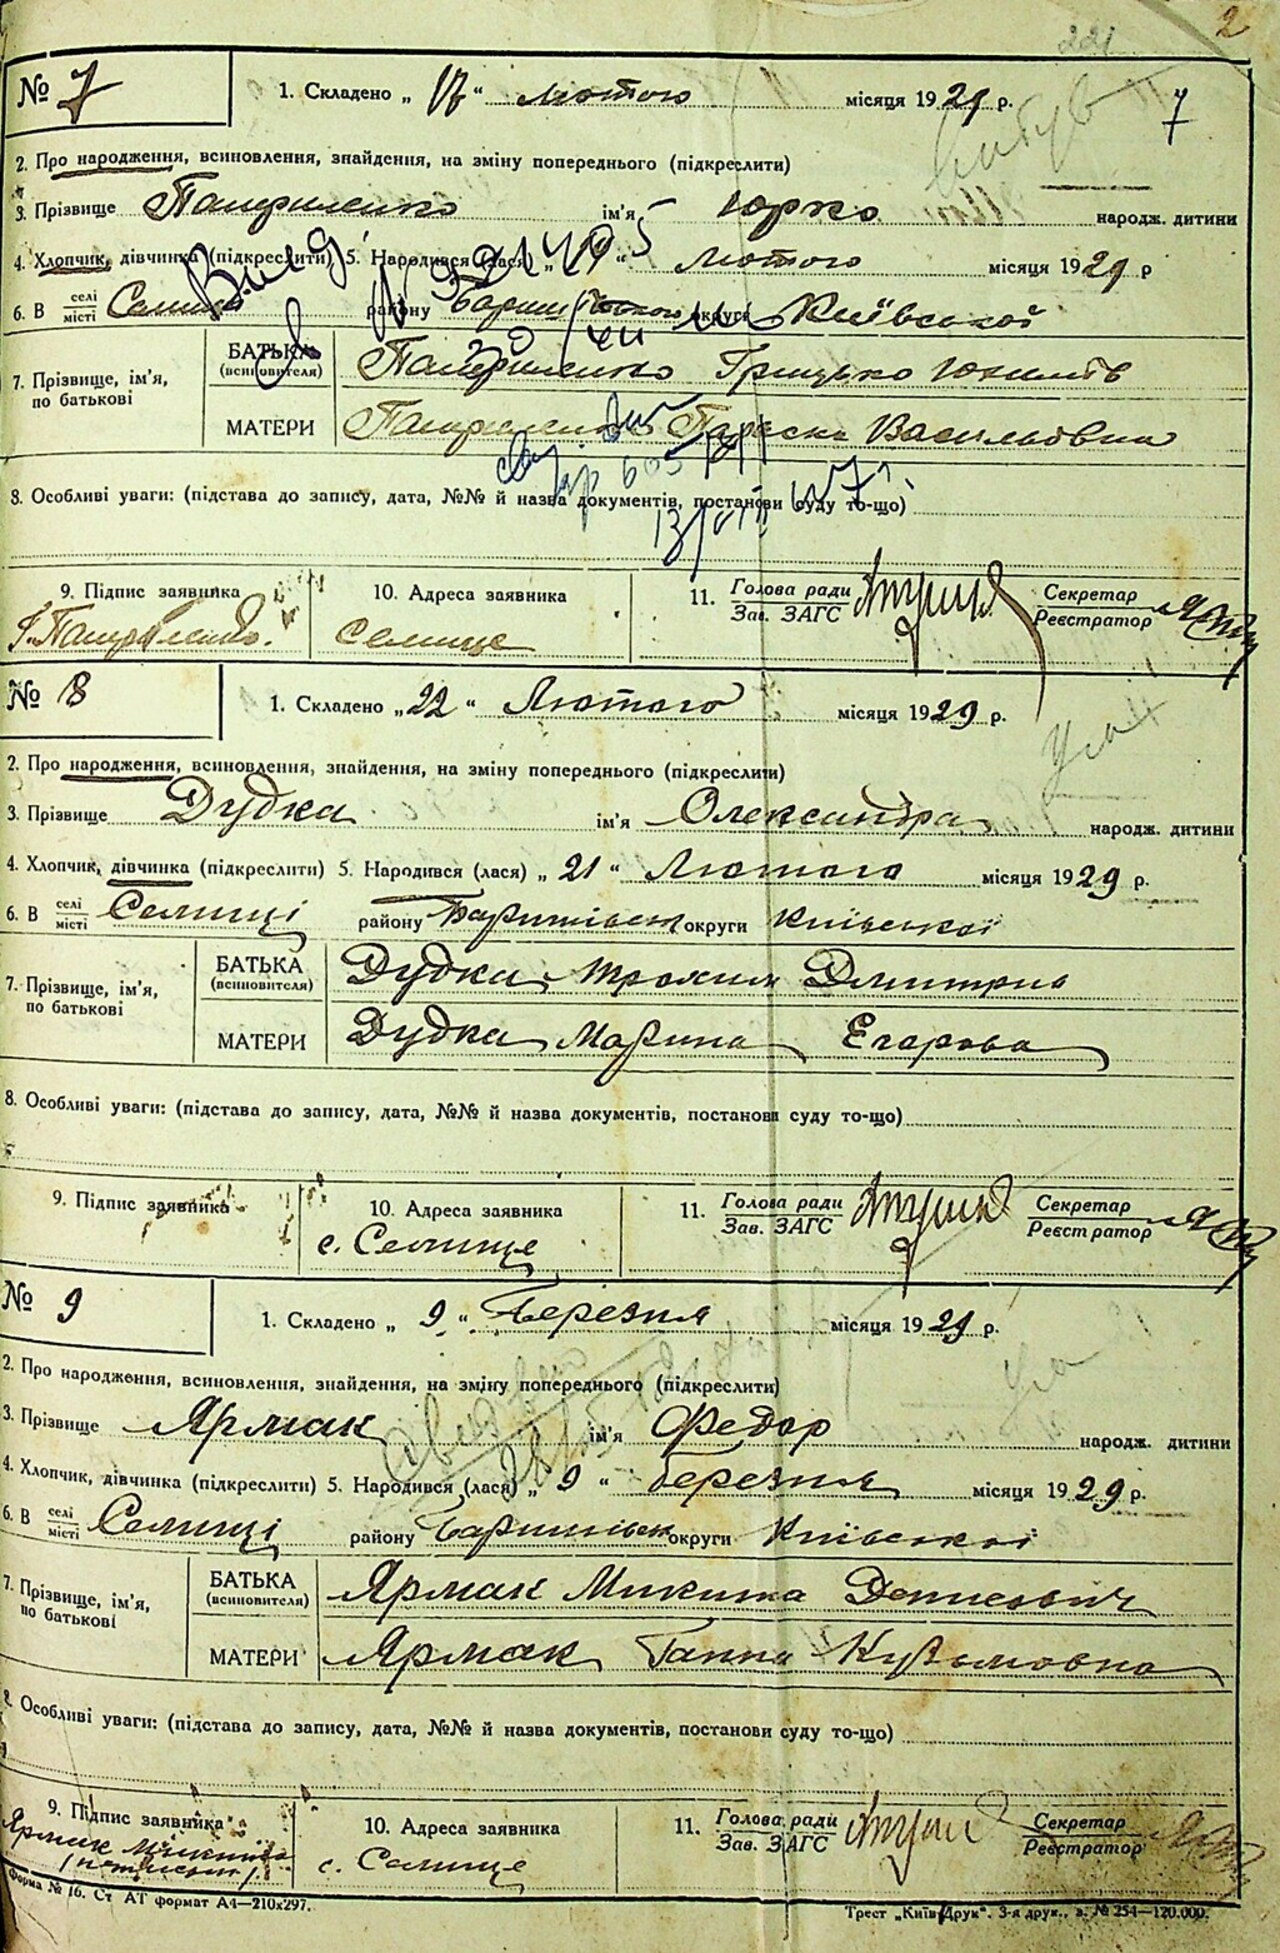 2
221
№ 7
1. Складено „ 17 “ лютого місяця 1929 р.
7
вибув
2. Про народження, всиновлення, знайдення, на зміну попереднього (підкреслити)
3. Прізвище ім'я Юрко народж. дитини
4. Хлопчик, дівчинка (підкреслити) 5. Народився (лася) „ “ лютого місяця 1929 р
6. В селі/місті Селищі району Бориш округи Київської
7. Прізвище, ім'я, по батькові
БАТЬКА (всиновителя) Грицько Юхимів
МАТЕРИ Параска Васильовна
8. Особливі уваги: (підстава до запису, дата, №№ й назва документів, постанови суду то-що)
9. Підпис заявника 10. Адреса заявника 11. Голова ради/Зав. ЗАГС Секретар/Реєстратор
Селище
№ 8
1. Складено „ 22 “ Лютого місяця 1929 р.
2. Про народження, всиновлення, знайдення, на зміну попереднього (підкреслити)
3. Прізвище Дудка ім'я Олександра народж. дитини
4. Хлопчик, дівчинка (підкреслити) 5. Народився (лася) „ 21 “ Лютого місяця 1929 р.
6. В селі/місті Селищі району Баришівськ округи Київської
7. Прізвище, ім'я, по батькові
БАТЬКА (всиновителя) Дудка Трохим Дмитрио
МАТЕРИ Дудка Марина Егарова
8. Особливі уваги: (підстава до запису, дата, №№ й назва документів, постанови суду то-що)
9. Підпис заявника 10. Адреса заявника 11. Голова ради/Зав. ЗАГС Секретар/Реєстратор
с. Селище
№ 9
1. Складено „ 9 “ Березня місяця 1929 р.
2. Про народження, всиновлення, знайдення, на зміну попереднього (підкреслити)
3. Прізвище Ярмак ім'я Федор народж. дитини
4. Хлопчик, дівчинка (підкреслити) 5. Народився (лася) „ 9 “ березня місяця 1929 р.
6. В селі/місті Селищі району Баришівськ округи Київської
7. Прізвище, ім'я, по батькові
БАТЬКА (всиновителя) Ярмак Микита Денисович
МАТЕРИ Ярмак Ганна Кузьмовна
8. Особливі уваги: (підстава до запису, дата, №№ й назва документів, постанови суду то-що)
9. Підпис заявника 10. Адреса заявника 11. Голова ради/Зав. ЗАГС Секретар/Реєстратор
Ярмак Микита
с. Селище
Форма № 16. Ст АТ формат А4—210х297.
Трест „Київ-Друк“. 3-я друк., з. № 254—120.000.